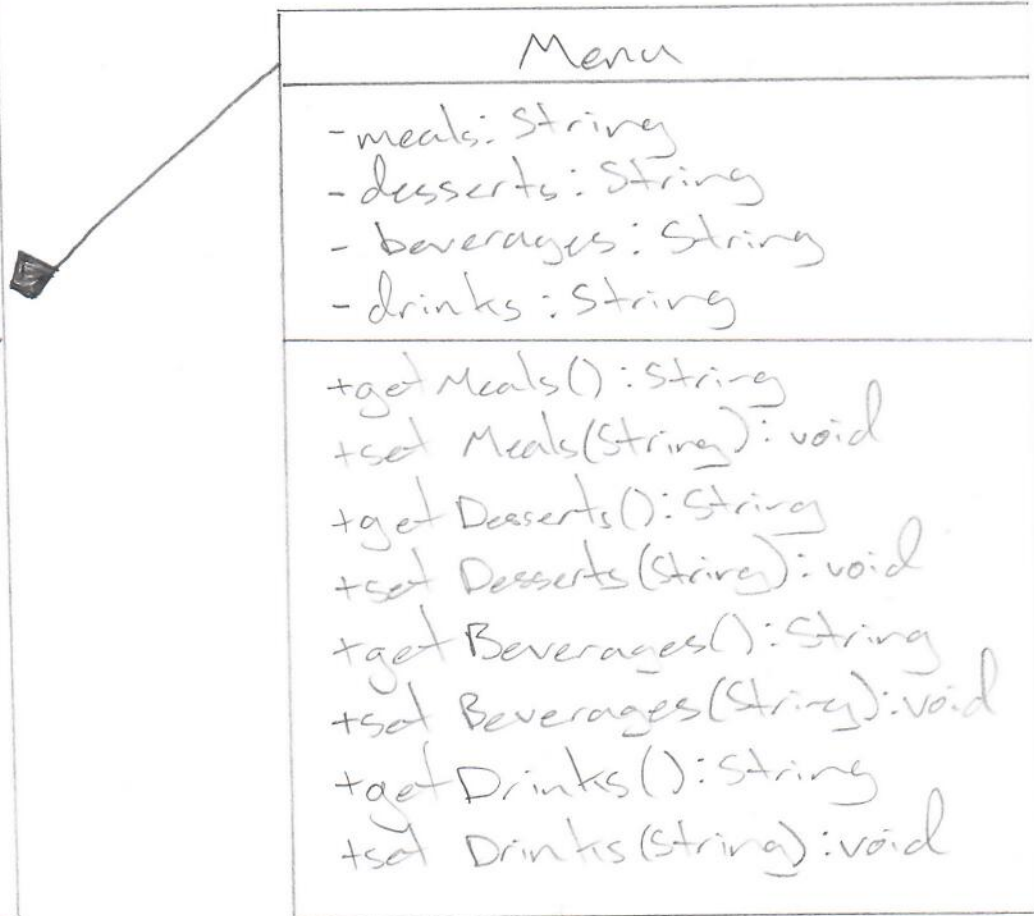 Menu
- meals: String
- desserts: String
- beverages: String
- drinks: String
+get Meals(): String
+set Meals(String): void
+get Desserts(): String
+set Desserts(String): void
+get Beverages(): String
+set Beverages(String): void
+get Drinks(): String
+set Drinks(String): void